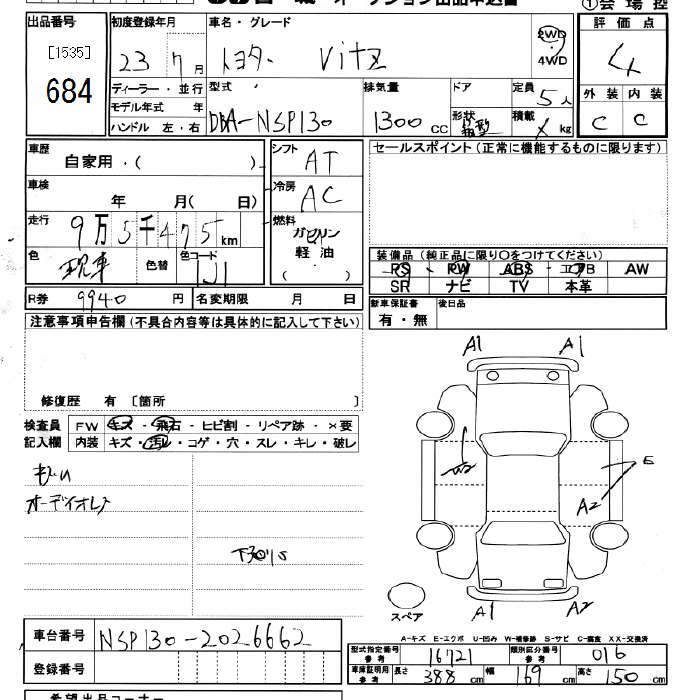 オークション出品申込書
①会場控
出品番号
[1535]
684
初度登録年月
23 7月
車名・グレード
トヨタ Vitz
2WD
4WD
評価点
4
外装 内装
C C
ディーラー・並行
モデル年式 年
ハンドル 左・右
型式
DBA-NSP130
排気量
1300cc
ドア
形状 箱型
定員 5人
積載 kg
車歴
自家用・( )
車検
年 月( 日)
走行
9万5千475km
色
現車
色替
色コード
1J1
シフト
AT
冷房
AC
燃料
ガソリン
軽油
( )
R券 9940円
名変期限 月 日
セールスポイント(正常に機能するものに限ります)
装備品(純正品に限り○をつけてください)
PS PW ABS エアB AW
SR ナビ TV 本革
新車保証書
有・無
後日品
注意事項申告欄(不具合内容等は具体的に記入して下さい)
修復歴 有 [箇所 ]
検査員
記入欄
FW キズ・飛石・ヒビ割・リペア跡・×要
内装 キズ・汚れ・コゲ・穴・スレ・キレ・破レ
オーディオレス
下廻りS
A1 A1
W2
E
A2
A1 A2
スペア
A-キズ E-エクボ U-凹み W-補修跡 S-サビ C-腐食 XX-交換済
車台番号 NSP130-2026662
登録番号
型式指定番号
参考
16721
類別区分番号
参考
016
車庫証明用
参考
長さ 388cm 幅 169cm 高さ 150cm
希望出品コーナー